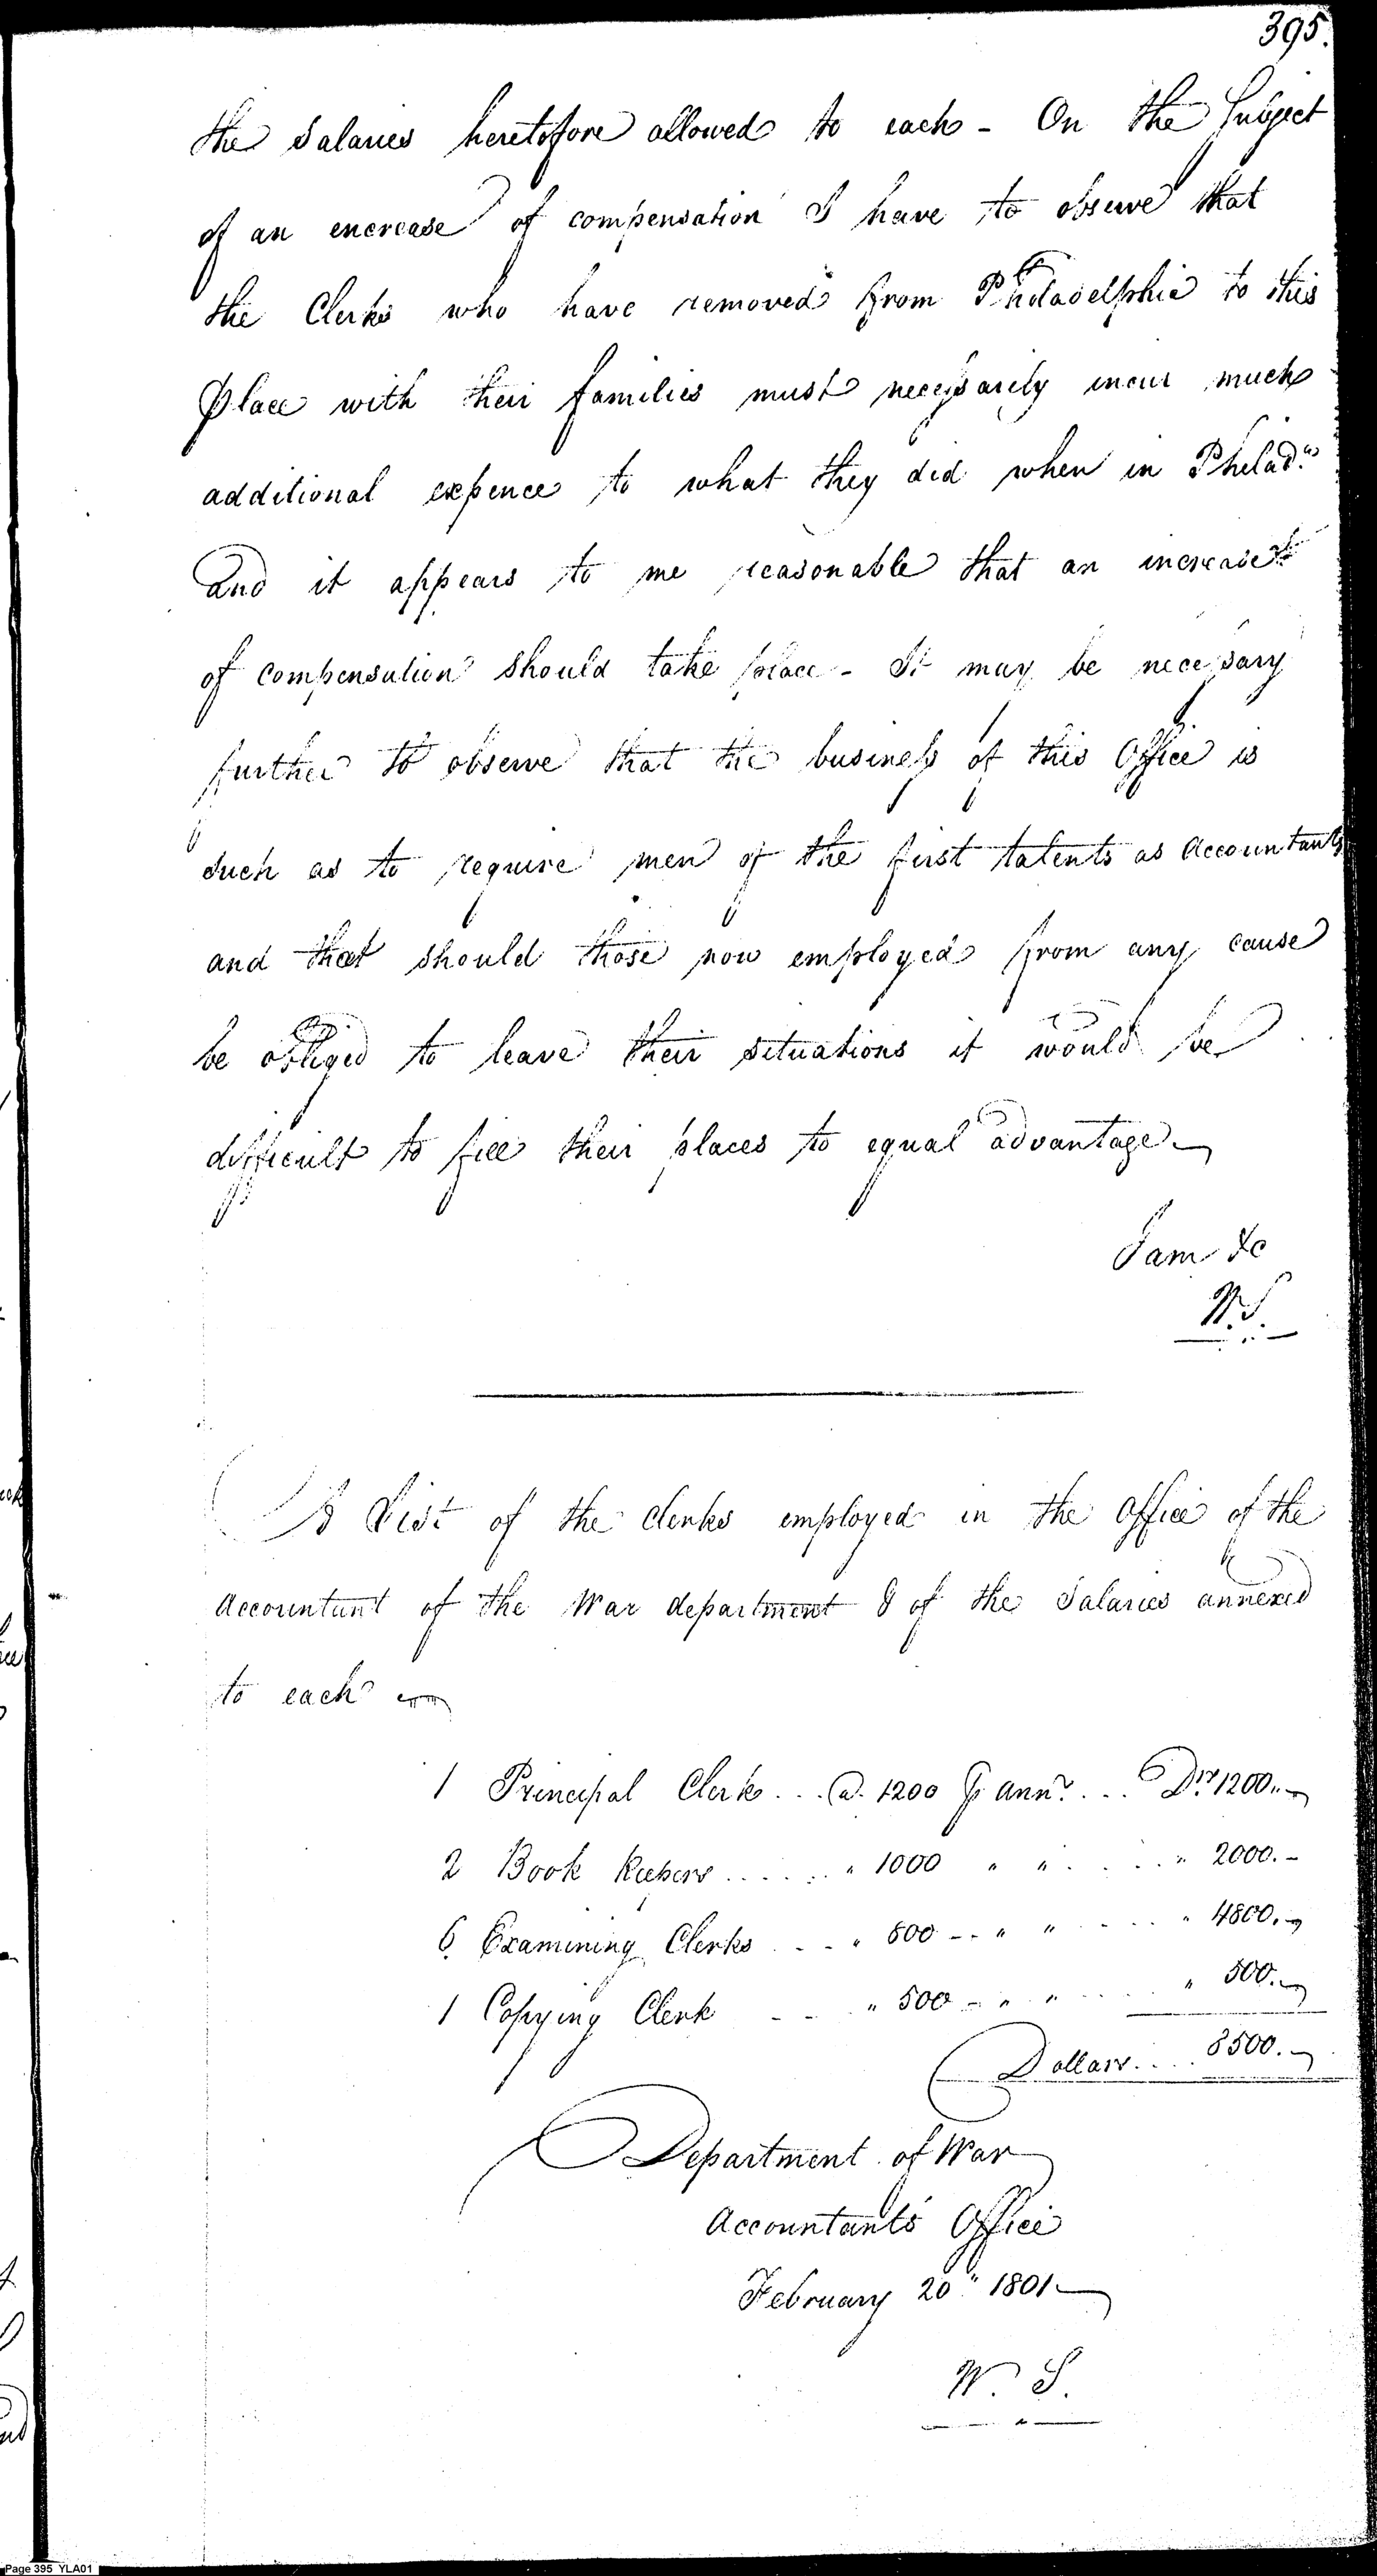 395.
the Salaries heretofore allowed to each - On the Subject
of an encrease of compensation I have to observe that
the Clerks who have removed from Philadelphia to this
place with their families must necessarily incur much
additional expence to what they did when in Philad.a
and it appears to me reasonable that an increase
of compensation should take place - It may be necessary
further to observe that the business of this Office is
such as to require men of the first talents as Accountants
and that should those now employed from any cause
be obliged to leave their situations it would be
difficult to fill their places to equal advantage
I am &c
W.S.
A List of the Clerks employed in the Office of the
Accountant of the War department & of the Salaries annexed
to each
1 Principal Clerk . . . @. 1200 ⅌ Annm. . . . Drs. 1200..
2 Book Keepers . . . . . . " 1000 " " . . . . . " 2000.-
6 Examining Clerks . . . " 800 - - " " . . . . " 4800.-
1 Copying Clerk - - " 500 - " " . . . . " 500.-
Dollars . . . . 8500.-
Department of War
Accountants Office
February 20" 1801
W. S.
Page 395 YLA01